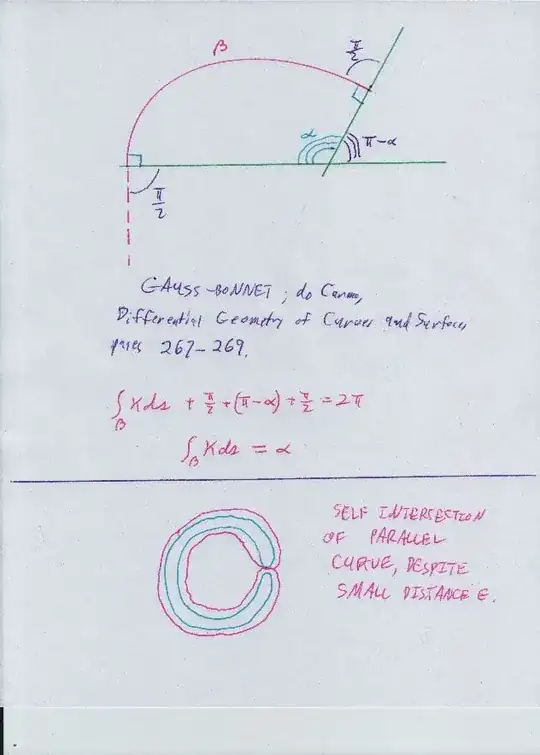 β
π/2
α
π-α
π/2
GAUSS-BONNET; do Carmo,
Differential Geometry of Curves and Surfaces
pages 267-269.
∫β K ds + π/2 + (π-α) + π/2 = 2π
∫β K ds = α
SELF INTERSECTION
OF PARALLEL
CURVE, DESPITE
SMALL DISTANCE ε.